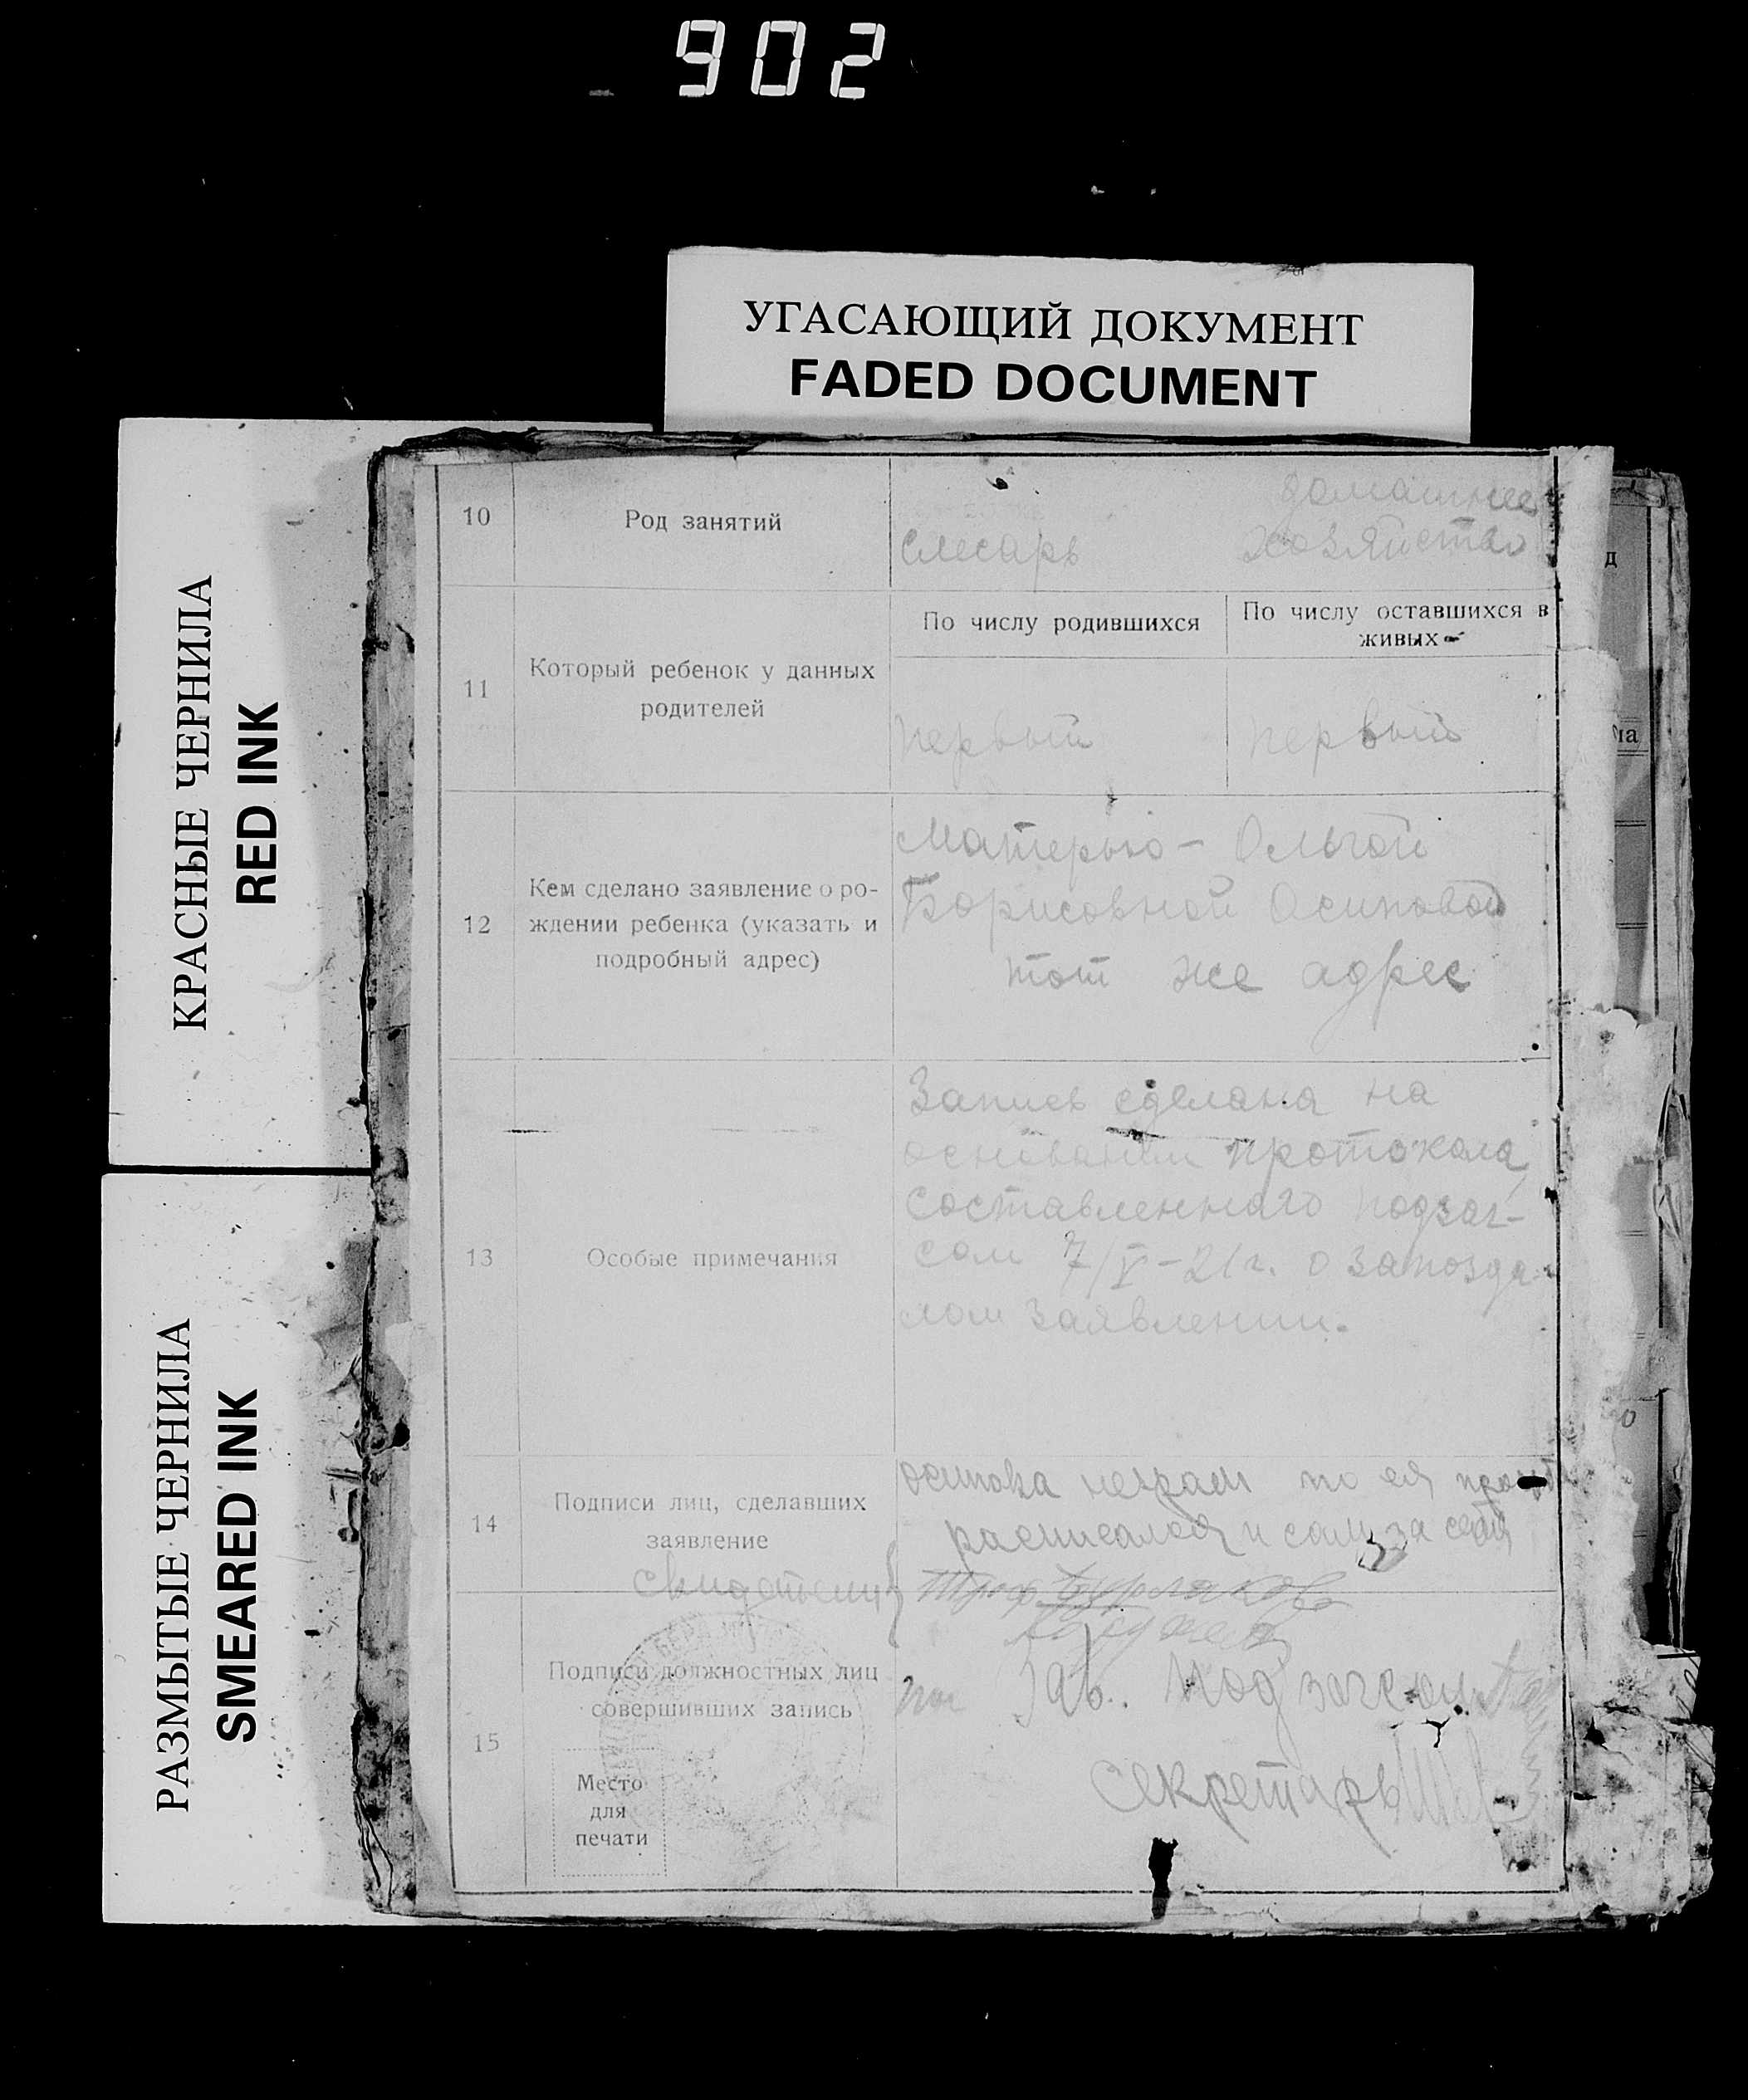 902
УГАСАЮЩИЙ ДОКУМЕНТ
FADED DOCUMENT
КРАСНЫЕ ЧЕРНИЛА
RED INK
РАЗМЫТЫЕ ЧЕРНИЛА
SMEARED INK
10
Род занятий
слесарь
домашнее
хозяйство
11
Который ребенок у данных
родителей
По числу родившихся
По числу оставшихся в
живых
первый
первый
12
Кем сделано заявление о ро-
ждении ребенка (указать и
подробный адрес)
Матерью - Ольгой
Борисовной Осиповой
тот же адрес
13
Особые примечания
Запись сделана на
основании протокола,
составленного подзаг-
сом 7/V-21г. о запозда-
лом заявлении.
14
Подписи лиц, сделавших
заявление
осипова неграм по ея
расписался и сам за себя
свидетели
15
Подписи должностных лиц
совершивших запись
Место
для
печати
Зав. Подзагсом
секретарь